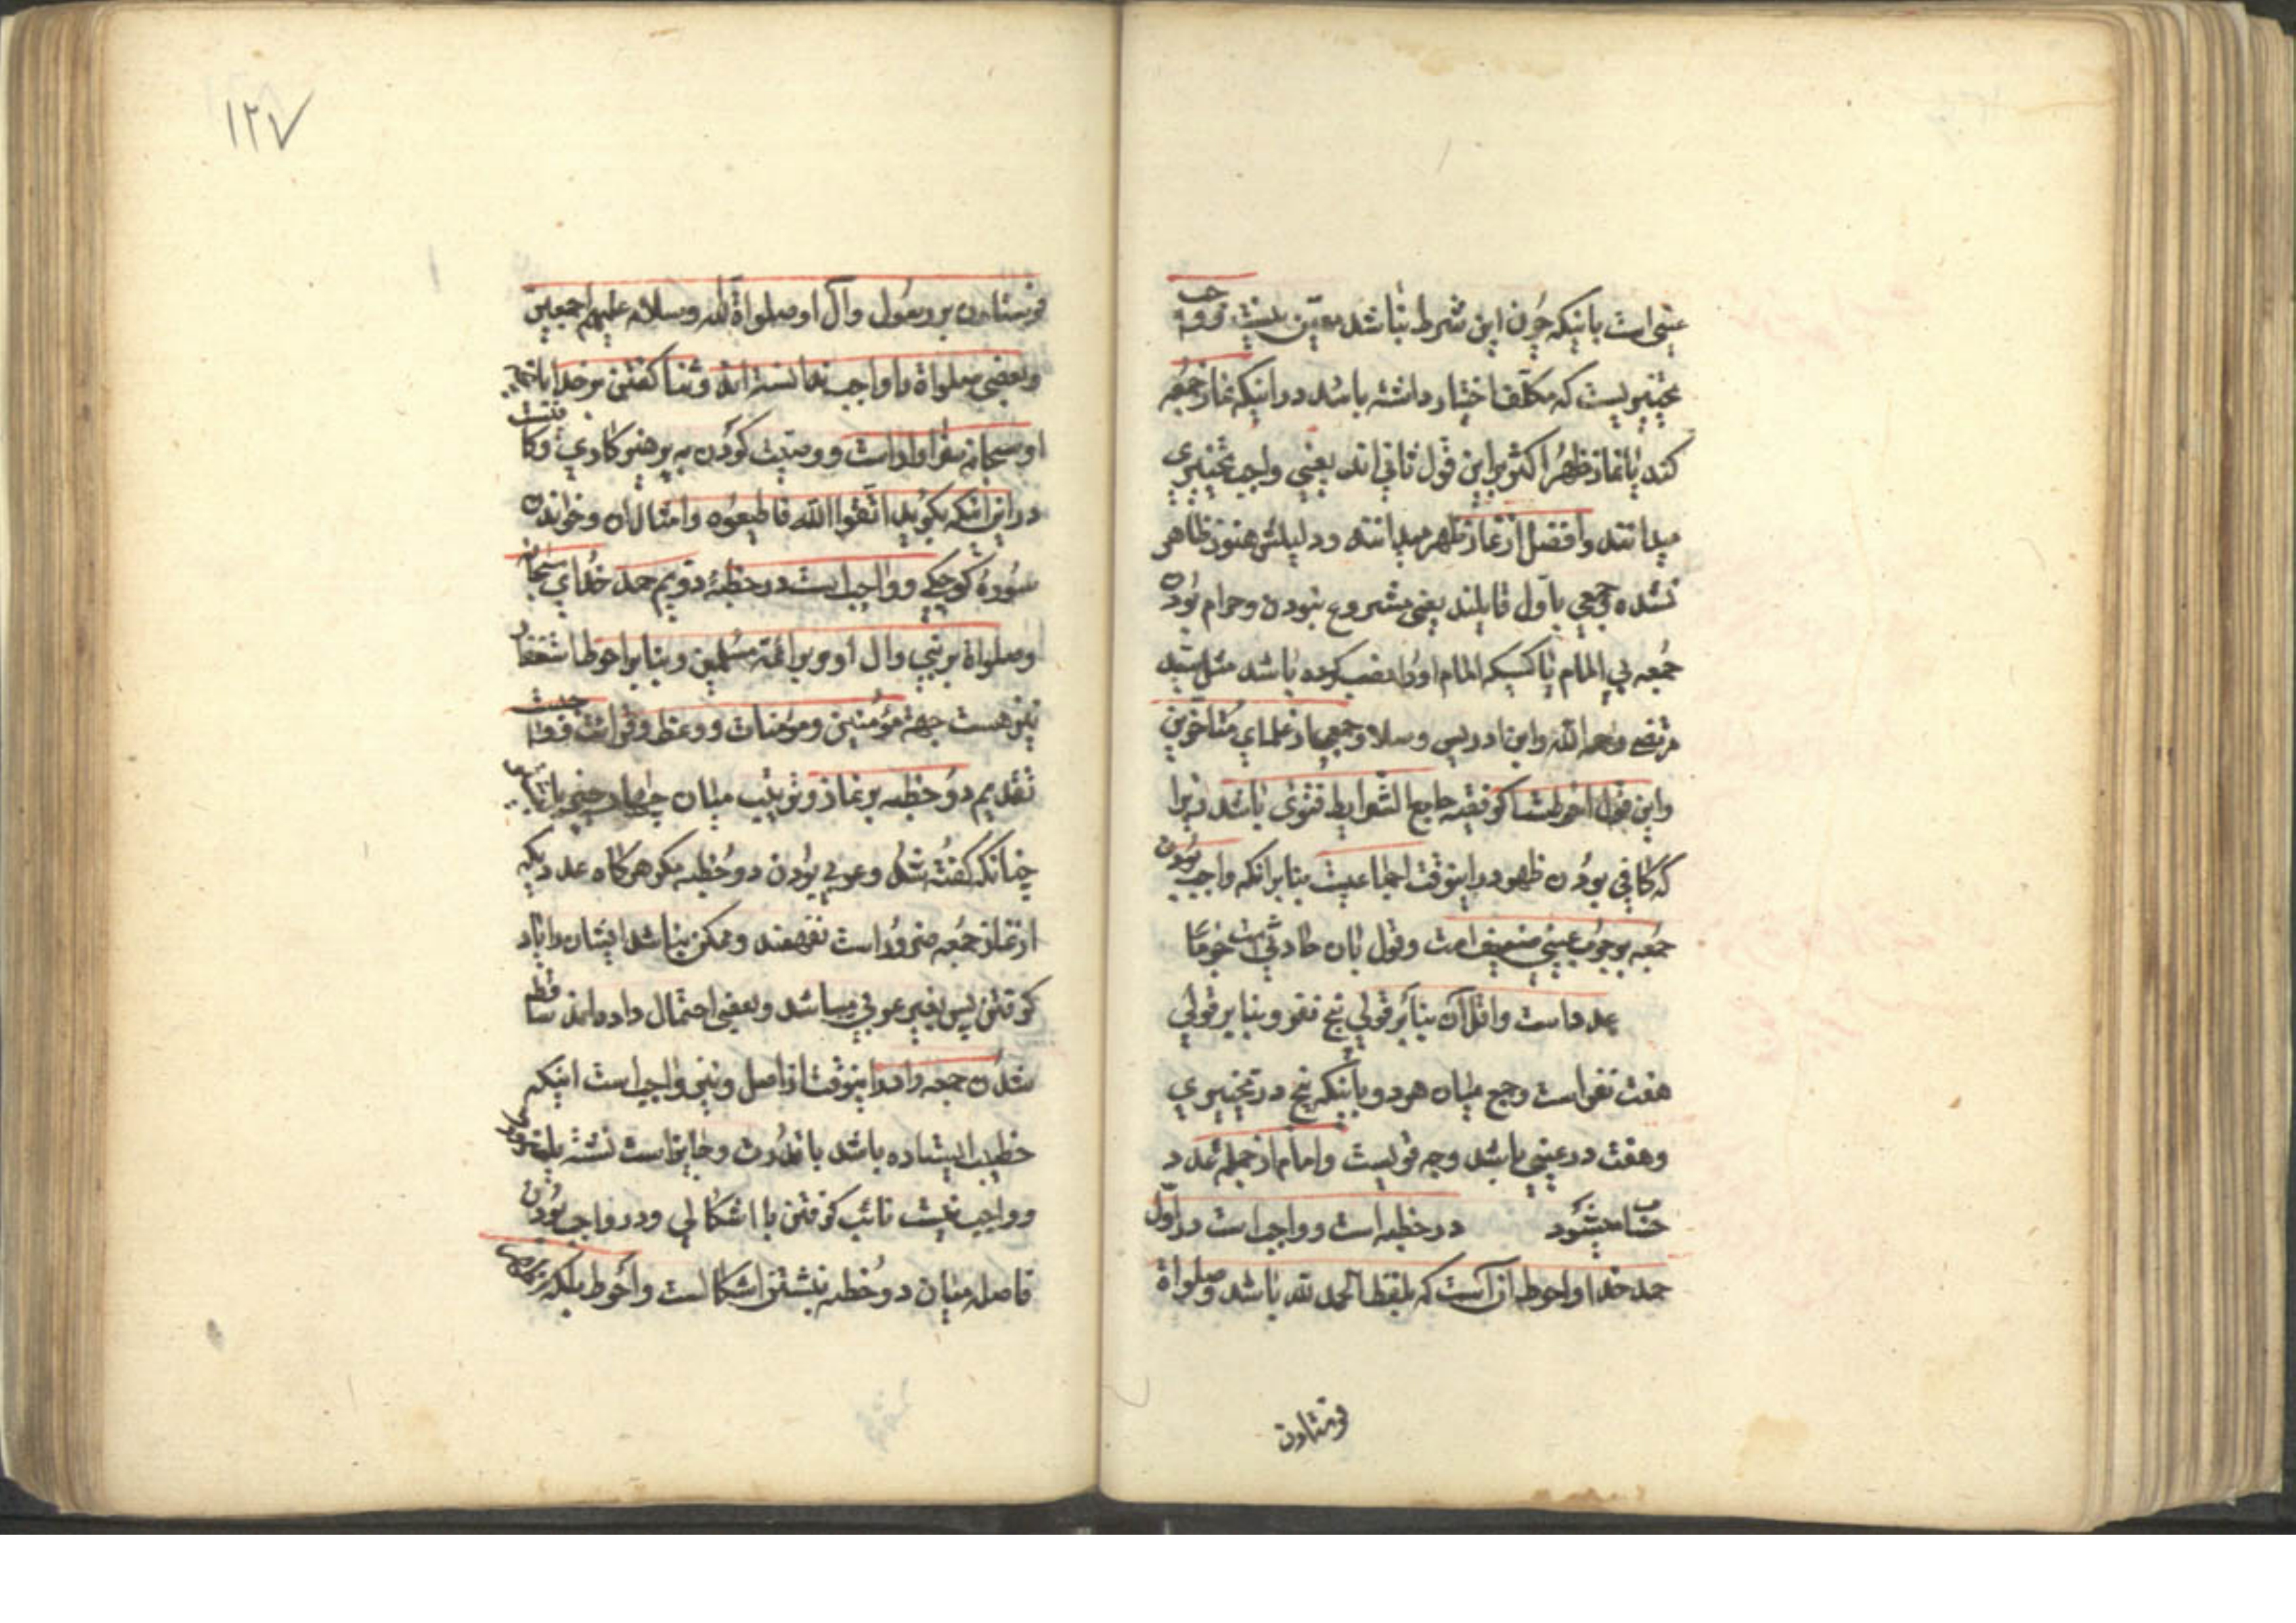 عینی است بانیکه چون این شرط نباشد معین نیست و وجوب
تخییریست که مکلف اختیار داشته باشد در اینکه نماز جمعه
کند یا نماز ظهر اکثر براین قول ثانی اند یعنی واجب تخییری
میدانند وافضل از نماز ظهر میدانند ودلیلش هنوز ظاهر
نشده وجمعی باول قایلند یعنی مشروع نبودن وحرام بودن
جمعه بی امام یا کسیکه امام اورا نصب کرده باشد مثل سید
مرتضی رحمه الله وابن ادریس وسلار وجمعی از علمای متاخرین
واین قول احوطست اگر فقیه جامع الشرایط فتوی باشد زیرا
که کافی بودن ظهر در اینوقت اجماعیست بنابرانکه واجب بودن
جمعه بوجوب عینی ضعیف است وقول بان حادثست
عدد است واقل آن بنابر قولی پنج نفر وبنابر قولی
هفت نفر است وجمع میان هر دو بانیکه پنج در تخییری
وهفت در عینی باشد وجه قویست وامام از جمله عدد
حساب میشود در خطبه است وواجب است در اول
حمد خدا واحوط ان آنست که بلفظ الحمد لله باشد وصلواة
فرستادن
۱۲۷
فرستادن بر رسول وآل او صلواة الله وسلامه علیهم اجمعین
وبعضی صلواة را واجب ندانسته اند وثنا گفتن بر خدا بانچه
او سبحانه سزاوار است ووصیت کردن به پرهیزکاری وکافیست
در این اینکه بگوید اتقوا الله فاطیعوه وامثال ان وخواندن
سوره کوچکی وواجب است در خطبهٔ دویم حمد خدای سبحانه
وصلواة بر نبی وال او وبر ائمه مسلمین وبنابر احوط استغفار
نیز هست جهة مؤمنین ومؤمنات ووعظ وقرائت وواجبست
تقدیم دو خطبه بر نماز وترتیب میان
چنانکه گفته شد وعربی بودن دو خطبه مگر هرگاه عددیکه
از نماز جمعه ضرور است نفهمند وممکن نباشد ایشان را یاد
گرفتن پس بغیر عربی میباشد وبعضی احتمال داده اند ساقط
شدن جمعه را در اینوقت از اصل ونیز واجب است اینکه
خطیب ایستاده باشد با قدرت وجایز است نشسته
وواجب نیست نائب گرفتن با اشکالی ودر واجب بودن
فاصله میان دو خطبه بنشستن اشکالست واحوط بلکه